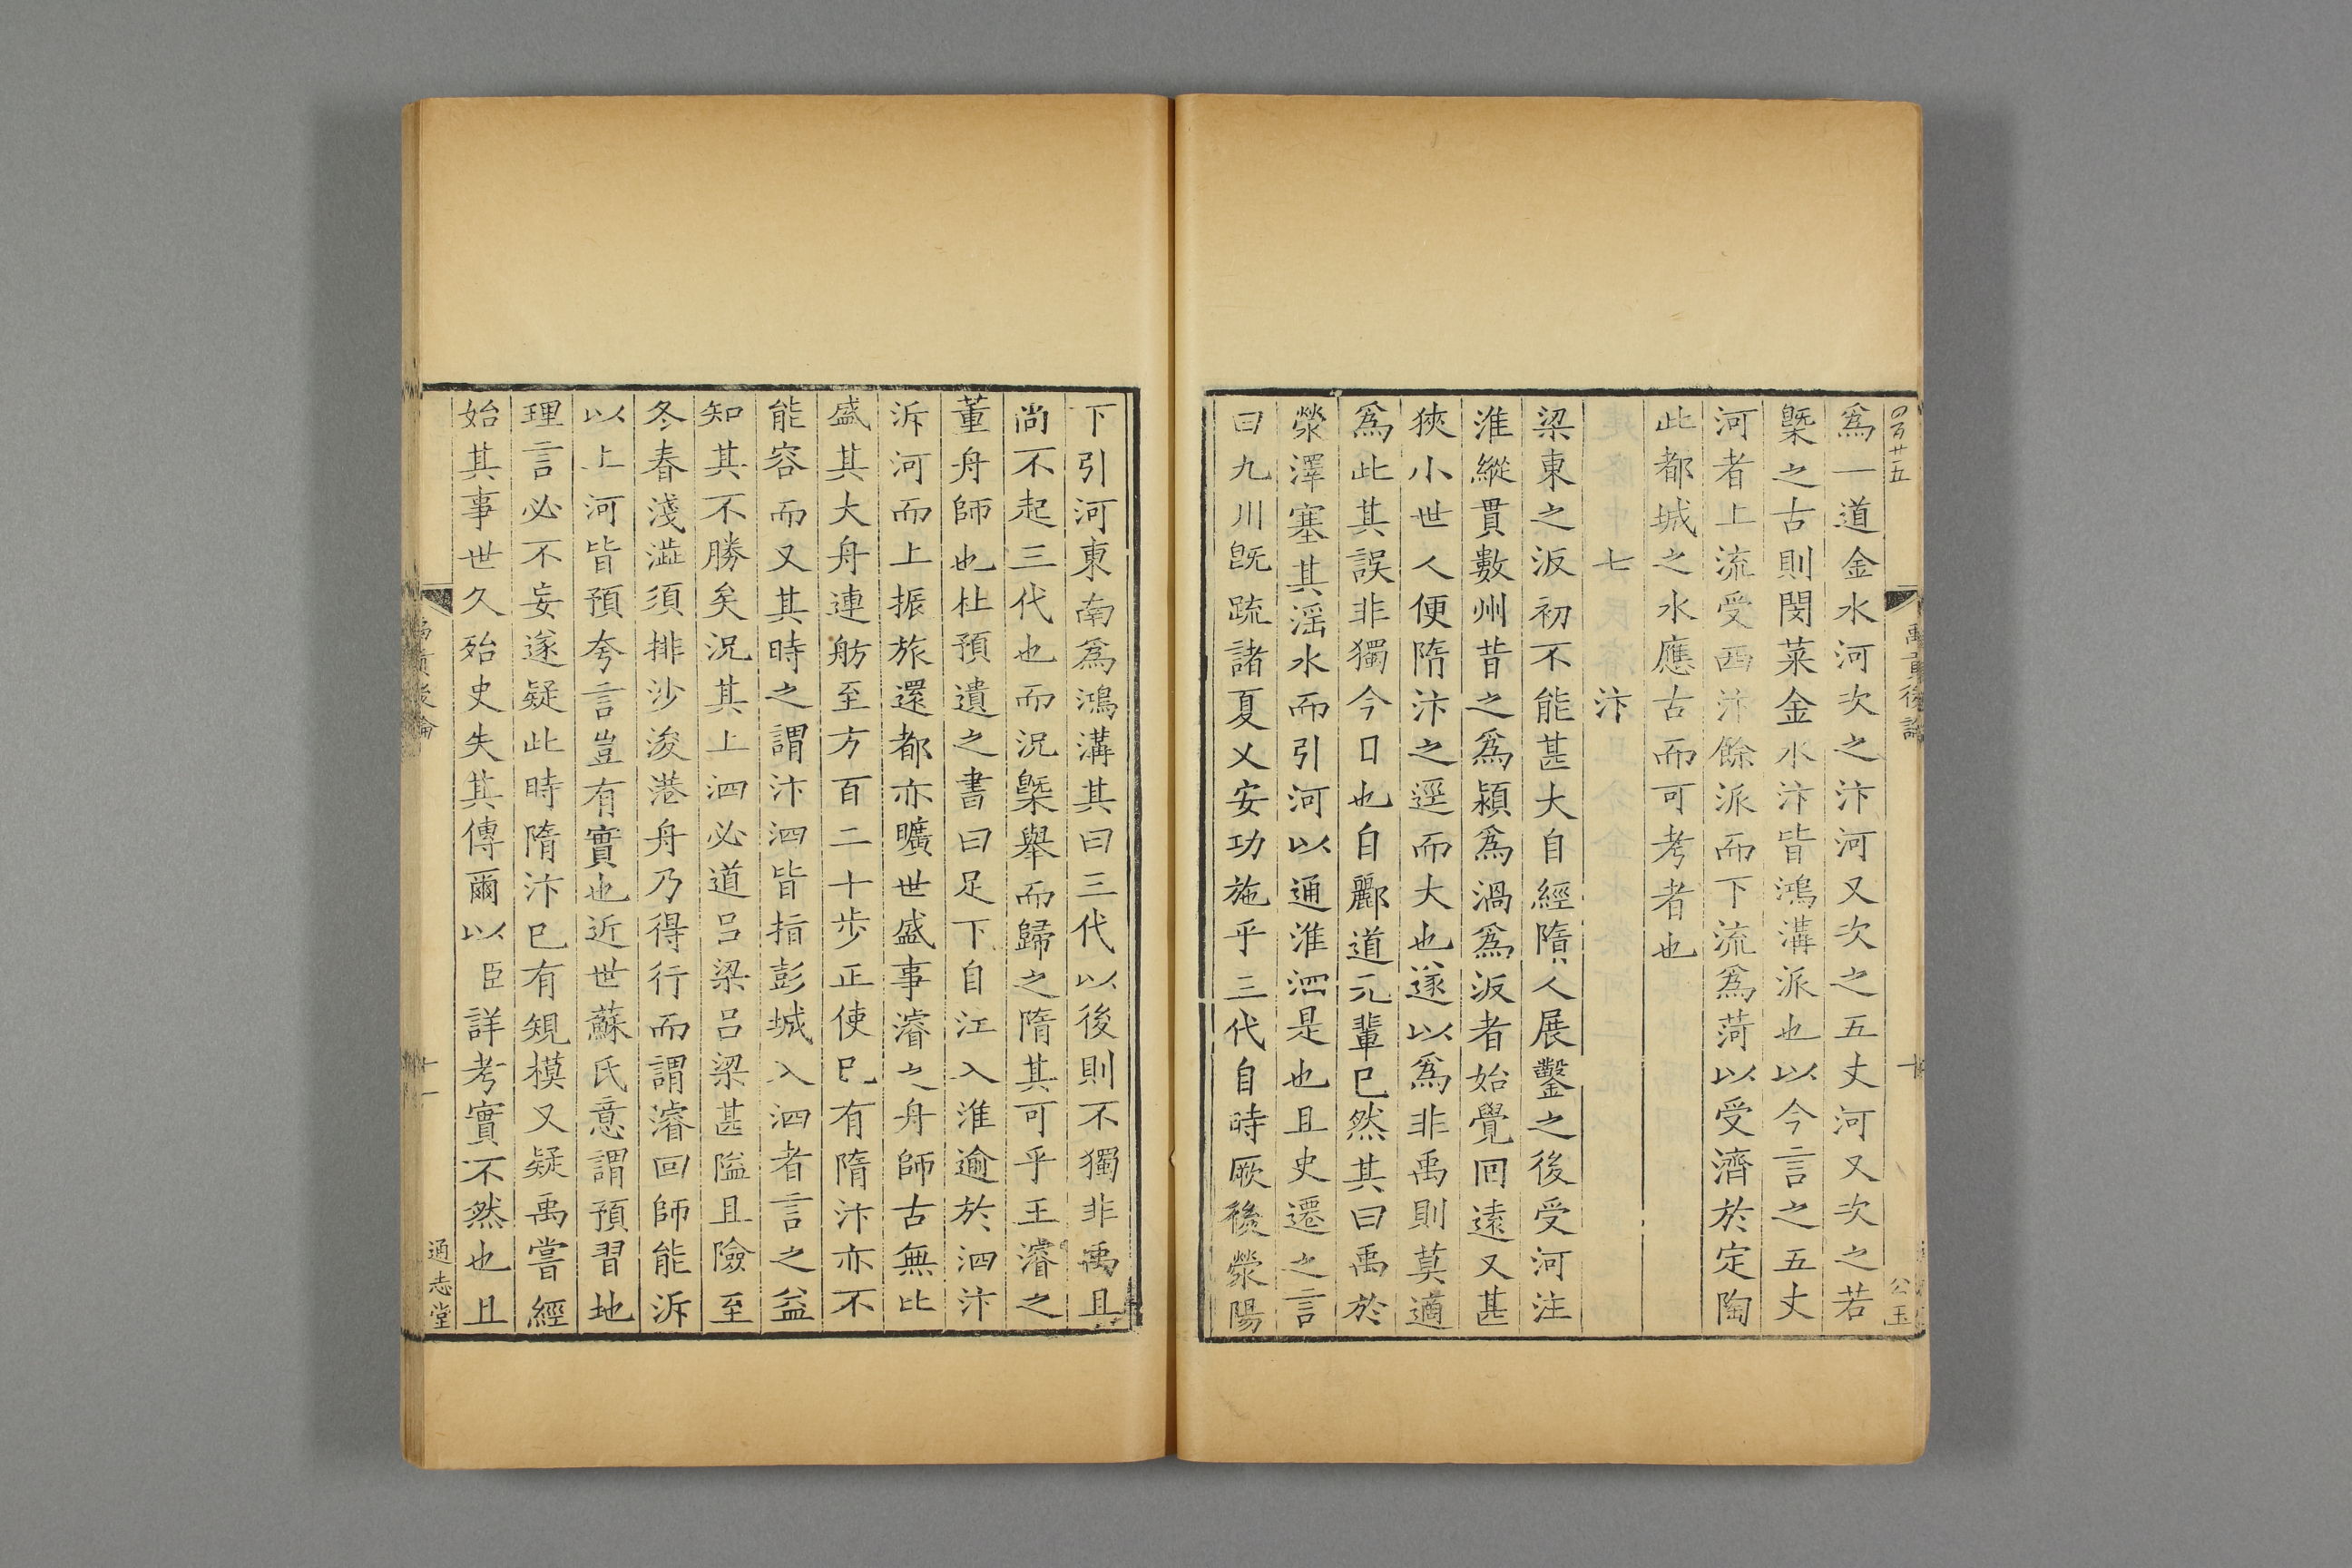 四百廿五
禹貢後論
十
公玉
爲一道金水河次之汴河又次之五丈河又次之若
槩之古則閔菜金水汴皆鴻溝派也以今言之五丈
河者上流受西汴餘派而下流爲菏以受濟於定陶
此都城之水應古而可考者也
七　汴
梁東之汳初不能甚大自經隋人展鑿之後受河注
淮縱貫數州昔之爲潁爲渦爲汳者始覺回遠又甚
狹小世人便隋汴之逕而大也遂以爲非禹則莫適
爲此其誤非獨今日也自酈道元輩已然其曰禹於
滎澤塞其滛水而引河以通淮泗是也且史遷之言
曰九川旣疏諸夏乂安功施乎三代自時厥後滎陽
下引河東南爲鴻溝其曰三代以後則不獨非禹且
尚不起三代也而況槩舉而歸之隋其可乎王濬之
董舟師也杜預遺之書曰足下自江入淮逾於泗汴
泝河而上振旅還都亦曠世盛事濬之舟師古無比
盛其大舟連舫至方百二十步正使已有隋汴亦不
能容而又其時之謂汴泗皆指彭城入泗者言之益
知其不勝矣況其上泗必道呂梁呂梁甚隘且險至
冬春淺澁須排沙浚港舟乃得行而謂濬回師能泝
以上河皆預夸言豈有實也近世蘇氏意謂預習地
理言必不妄遂疑此時隋汴已有規模又疑禹嘗經
始其事世久殆史失其傳爾以臣詳考實不然也且
禹貢後論
十一
通志堂